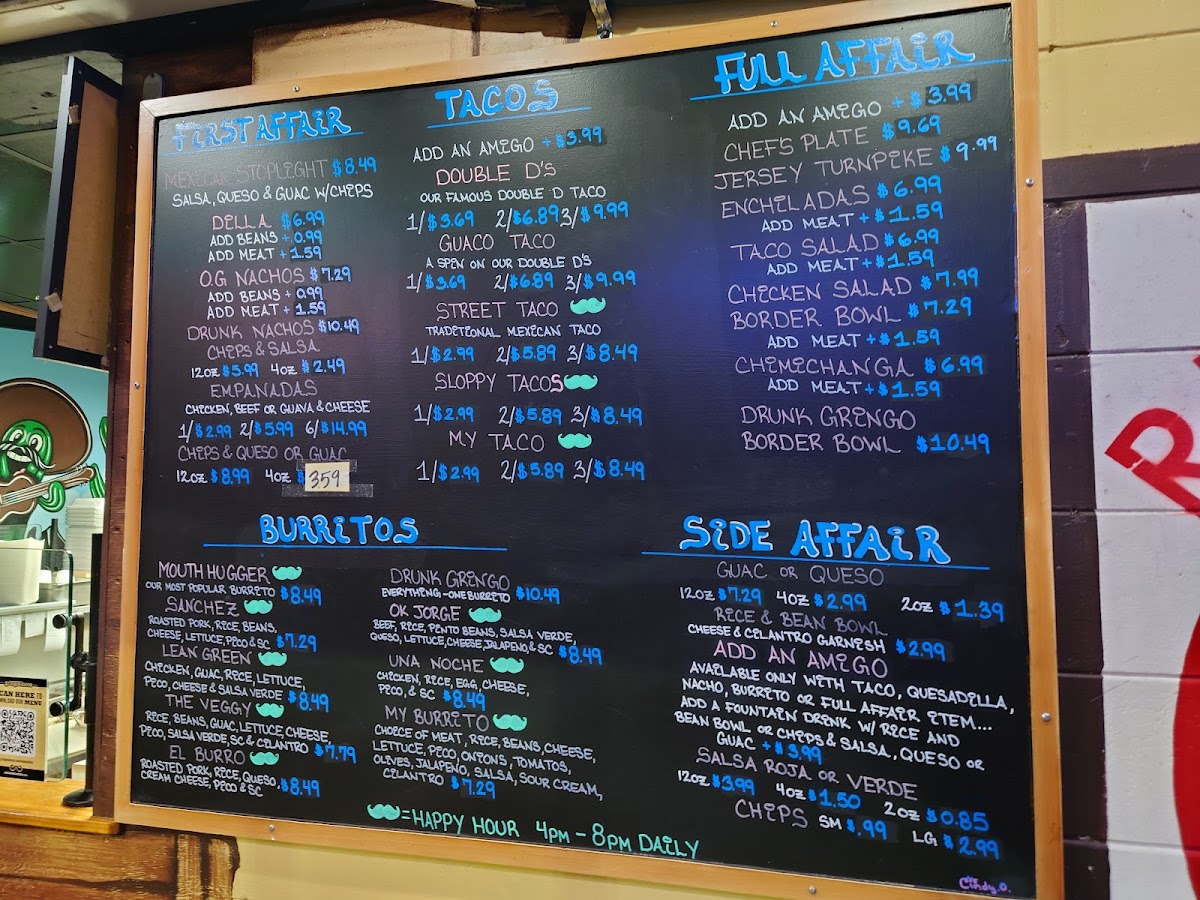 FIRST AFFAIR
MEXICAN STOPLIGHT $8.49
SALSA, QUESO & GUAC W/CHIPS
DILLA $6.99
ADD BEANS + 0.99
ADD MEAT + 1.59
O.G NACHOS $7.29
ADD BEANS + 0.99
ADD MEAT + 1.59
DRUNK NACHOS $10.49
CHIPS & SALSA
12oz $5.99 4oz $2.49
EMPANADAS
CHICKEN, BEEF OR GUAVA & CHEESE
1/$2.99 2/$5.99 6/$14.99
CHIPS & QUESO OR GUAC
12oz $8.99 4oz $359
TACOS
ADD AN AMIGO + $3.99
DOUBLE D's
OUR FAMOUS DOUBLE D TACO
1/$3.69 2/$6.89 3/$9.99
GUACO TACO
A SPIN ON OUR DOUBLE D'S
1/$3.69 2/$6.89 3/$9.99
STREET TACO
TRADITIONAL MEXICAN TACO
1/$2.99 2/$5.89 3/$8.49
SLOPPY TACOS
1/$2.99 2/$5.89 3/$8.49
MY TACO
1/$2.99 2/$5.89 3/$8.49
FULL AFFAIR
ADD AN AMIGO + $3.99
CHEF'S PLATE $9.69
JERSEY TURNPIKE $9.99
ENCHILADAS $6.99
ADD MEAT + $1.59
TACO SALAD $6.99
ADD MEAT + $1.59
CHICKEN SALAD $7.99
BORDER BOWL $7.29
ADD MEAT + $1.59
CHIMICHANGA $6.99
ADD MEAT + $1.59
DRUNK GRINGO
BORDER BOWL $10.49
BURRITOS
MOUTH HUGGER
OUR MOST POPULAR BURRITO $8.49
SANCHEZ
ROASTED PORK, RICE, BEANS,
CHEESE, LETTUCE, PICO & SC $7.29
LEAN GREEN
CHICKEN, GUAC, RICE, LETTUCE,
PICO, CHEESE & SALSA VERDE $8.49
THE VEGGY
RICE, BEANS, GUAC, LETTUCE, CHEESE,
PICO, SALSA VERDE, SC & CILANTRO $7.79
EL BURRO
ROASTED PORK, RICE, QUESO,
CREAM CHEESE, PICO & SC $8.49
DRUNK GRINGO
EVERYTHING-ONE BURRITO $10.49
OK JORGE
BEEF, RICE, PINTO BEANS, SALSA VERDE,
QUESO, LETTUCE, CHEESE, JALAPENO, & SC $8.49
UNA NOCHE
CHICKEN, RICE, EGG, CHEESE,
PICO, & SC $8.49
MY BURRITO
CHOICE OF MEAT, RICE, BEANS, CHEESE,
LETTUCE, PICO, ONIONS, TOMATOS,
OLIVES, JALAPENO, SALSA, SOUR CREAM,
CILANTRO $7.29
=HAPPY HOUR 4PM - 8PM DAILY
SIDE AFFAIR
GUAC OR QUESO
12oz $7.29 4oz $2.99 2oz $1.39
RICE & BEAN BOWL
CHEESE & CILANTRO GARNISH $2.99
ADD AN AMIGO
AVAILABLE ONLY WITH TACO, QUESADILLA,
NACHO, BURRITO OR FULL AFFAIR ITEM....
ADD A FOUNTAIN DRINK W/ RICE AND
BEAN BOWL OR CHIPS & SALSA, QUESO OR
GUAC + $3.99
SALSA ROJA OR VERDE
12oz $3.99 4oz $1.50 2oz $0.85
CHIPS SM $.99 LG $2.99
Cindy.O.
CAN HERE TO
MENU